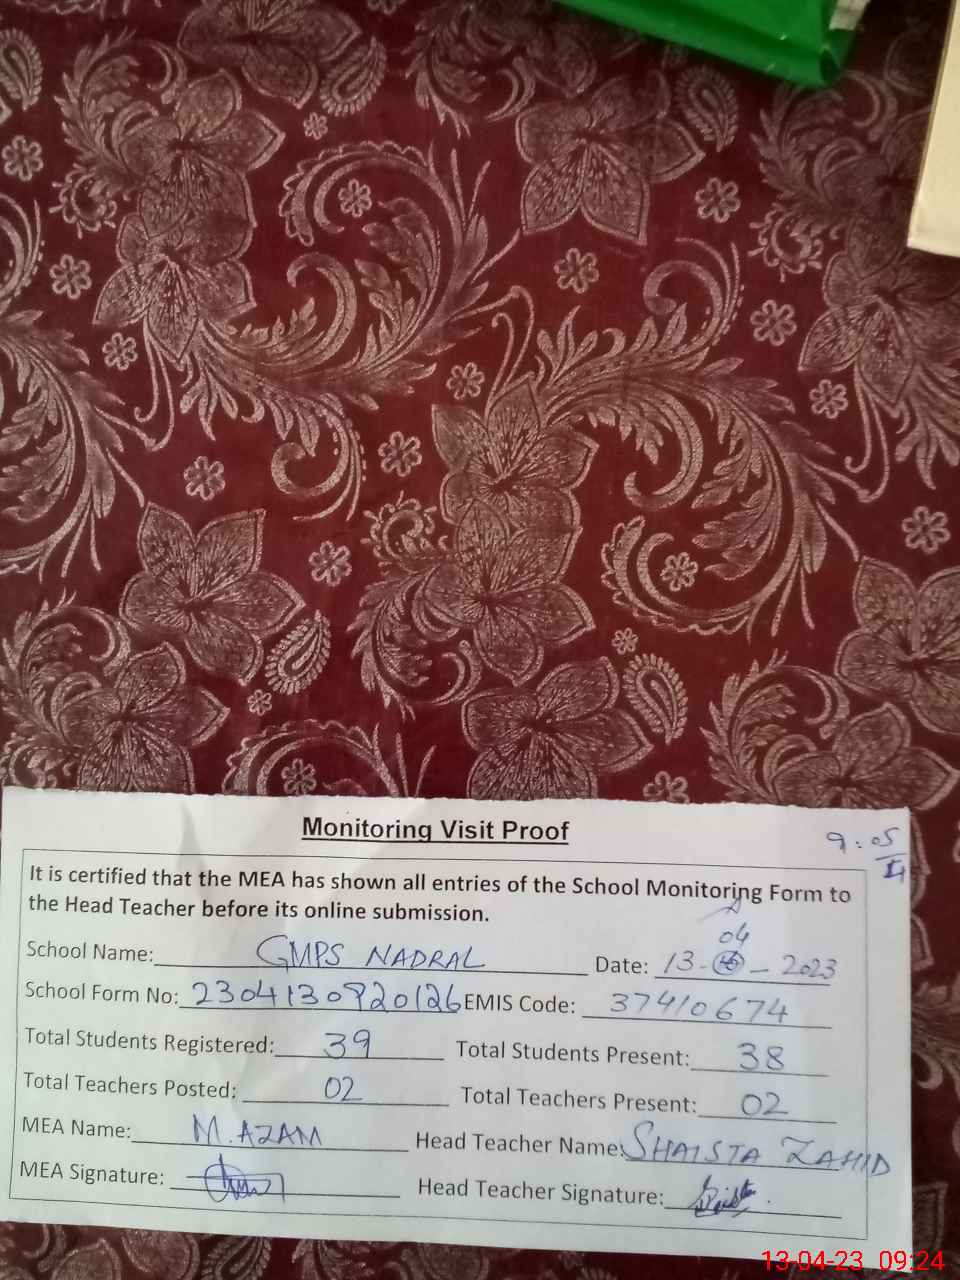 Monitoring Visit Proof
9:05
It is certified that the MEA has shown all entries of the School Monitoring Form to
the Head Teacher before its online submission.
04
School Name: GMPS NADRAL Date: 13- - 2023
School Form No: 2304130920126 EMIS Code: 37410674
Total Students Registered: 39 Total Students Present: 38
Total Teachers Posted: 02 Total Teachers Present: 02
MEA Name: M.AZAM Head Teacher Name: SHAISTA ZAHID
MEA Signature: Head Teacher Signature:
13-04-23 09:24